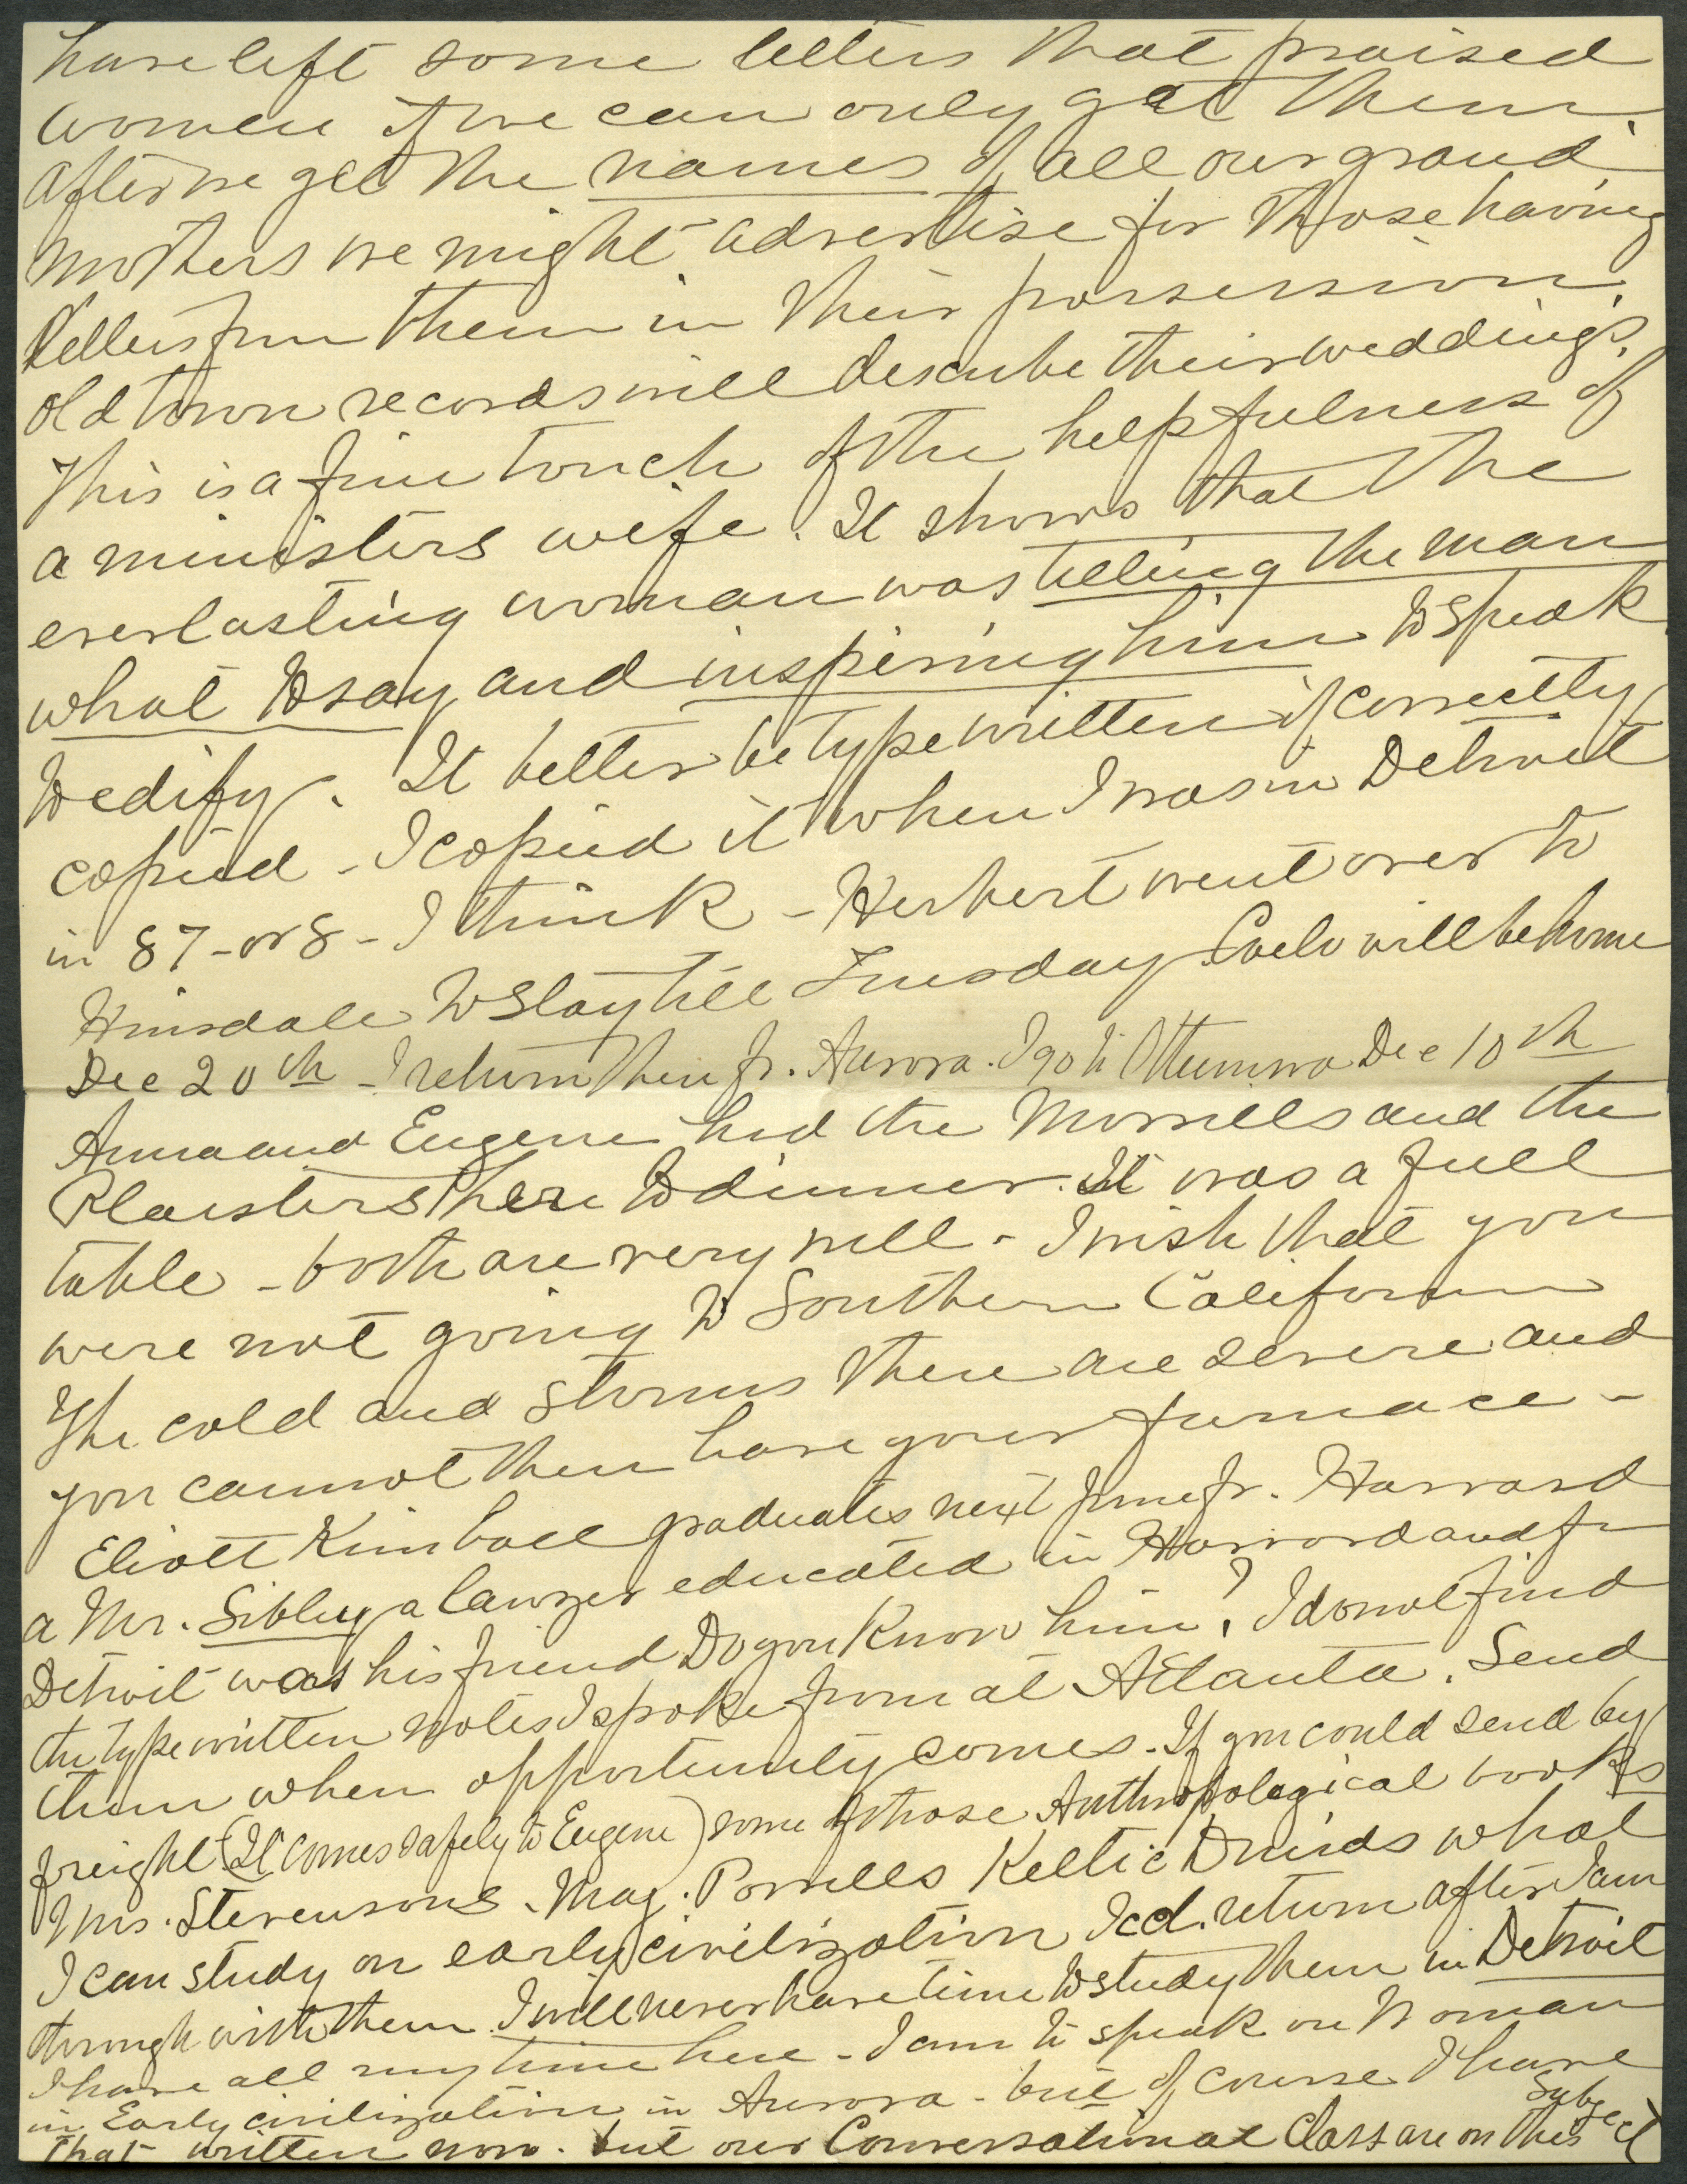 have left some letters that praised
women if we can only get them.
After we get the names of all our grand
mothers we might advertise for those having
letters from them in their possession.
Old town records will describe their weddings.
This is a fine touch of the helpfulness of
a ministers wife. It shows that the
everlasting woman was telling the man
what to say and inspiring him to speak
to edify. It better be typewritten if correctly
copied - I copied it when I was in Detroit
in 87 - or 8 - I think - Herbert went over to
Hinsdale to stay till Tuesday. will be home
Dec 20th - I return then fr. Aurora. I go to Ottumwa Dec 10th
Anna and Eugene had the Morrells and the
Plaisters here to dinner. It was a full
table - both are very well - I wish that you
were not going to Southern California
The cold and storms there are severe and
you cannot then have your furnace -
Eliott Kimball graduates next June fr. Harvard
a Mr. Sibley a lawyer educated in Harvard and fr
Detroit was his friend Do you know him? I do not find
the typewritten notes I spoke from at Atlanta. Send
them when opportunity comes. If you could send by
freight (It comes safely to Eugene) some of those Anthropological books
Mrs. Stevensons. Maj. Powells Keltic Druids what
I can study on early civilization I cd. return after I am
through with them. I will never have time to study them in Detroit
I have all my time here - I am to speak on Woman
in Early civilization in Aurora - but of course I have
that written now. but our Conversational Class are on this subject